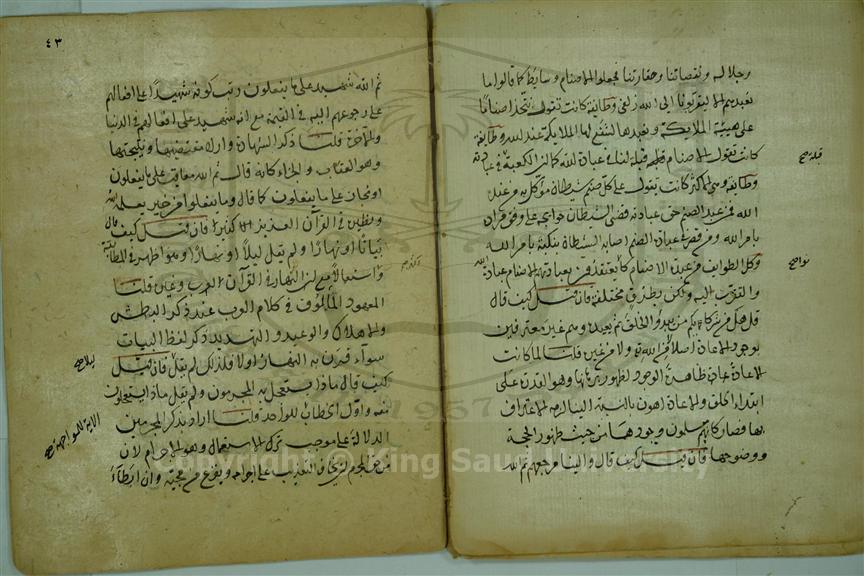 وجلاله ونقصاننا وحقارتنا فجعلوا الاصنام وسايط كما قالوا ما
نعبدهم الا ليقربونا الى الله زلفى وطائفة كانت تقول نتخذ اصناما
على هيئة الملايكة ونعبدها لتشفع لنا الملايكة عند الله وطائفة
كانت تقول الاصنام قبلة لنا في عبادة الله كما ان الكعبة قبلة في عبادته
وطائفة وهي الاكثر كانت تقول على كل صنم شيطان موكل به من عند
الله فمن عبد الصنم حق عبادته قضى الشيطان حوايجه على وفق مراده
بامر الله ومن قصر في عبادة الصنم اصابه الشيطان بنكبة بامر الله
وكل الطوايف من عبدة الاصنام كانوا يعتقدون بعبادتهم الاصنام عبادة الله
والتقرب اليه ولكن بطرق مختلفة فان قيل كيف قال
قل هل من شركائكم من يبدؤ الخلق ثم يعيده وهم غير معترفين
بوجود الاعادة اصلا لا من الله تع ولا من غيره قلنا لما كانت
الاعادة ظاهرة الوجود لظهور برهانها وهو القدرة على
ابتداء الخلق والاعادة اهون بالنسبة الينا لزمهم الاعتراف
بها فصاروا كانهم مسلمون وجودها من حيث ظهور الحجة
ووضوحها فان قيل كيف قال والينا مرجعهم ثم الله
قبلة صح
نواح
٤٣
ثم الله شهيد على ما يفعلون رتب كونه شهيدا على افعالهم
على رجوعهم اليه في القيمة مع انه شهيد على افعالهم في الدنيا
والاخرة قلنا ذكر الشهادة واراد مقتضيها ونتيجتها
وهو العقاب والجزاء كانه قال ثم الله معاقب على ما يفعلون
او مجاز على ما يفعلون كما قال وما تفعلوا من خير يعلمه الله
ونظيره في القرآن العزيز كثير فان قيل كيف قال
بياتا او نهارا ولم يقل ليلا او نهارا وهو اظهر في المطابقة
واستعمالا مع النهار في القرآن العزيز وغيره قلنا
المعهود المالوف في كلام العرب عند ذكر البطش
والاهلاك والوعيد والتهديد ذكر لفظ البيات
سواء قرن به النهار اولا فلذلك لم يقل فان قيل
كيف قال ماذا يستعجل به المجرمون ولم يقل ماذا يستعجلون
منه واول الخطاب للمواجهة قلنا اراد بذكر المجرمين
الدلالة على موجب ترك الاستعجال وهو الاجرام لان
من حق المجرم ان يخاف التعذيب على اجرامه ويفزع من مجيئه وان ابطاء
ليلا صح
الاية للمواجهة صح
Copyright © King Saud University
1957